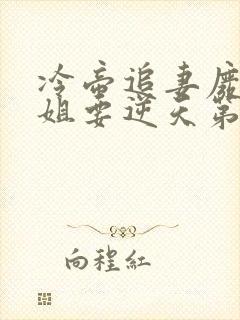 冷帝追妻廢
姐要逆天第
向程紅